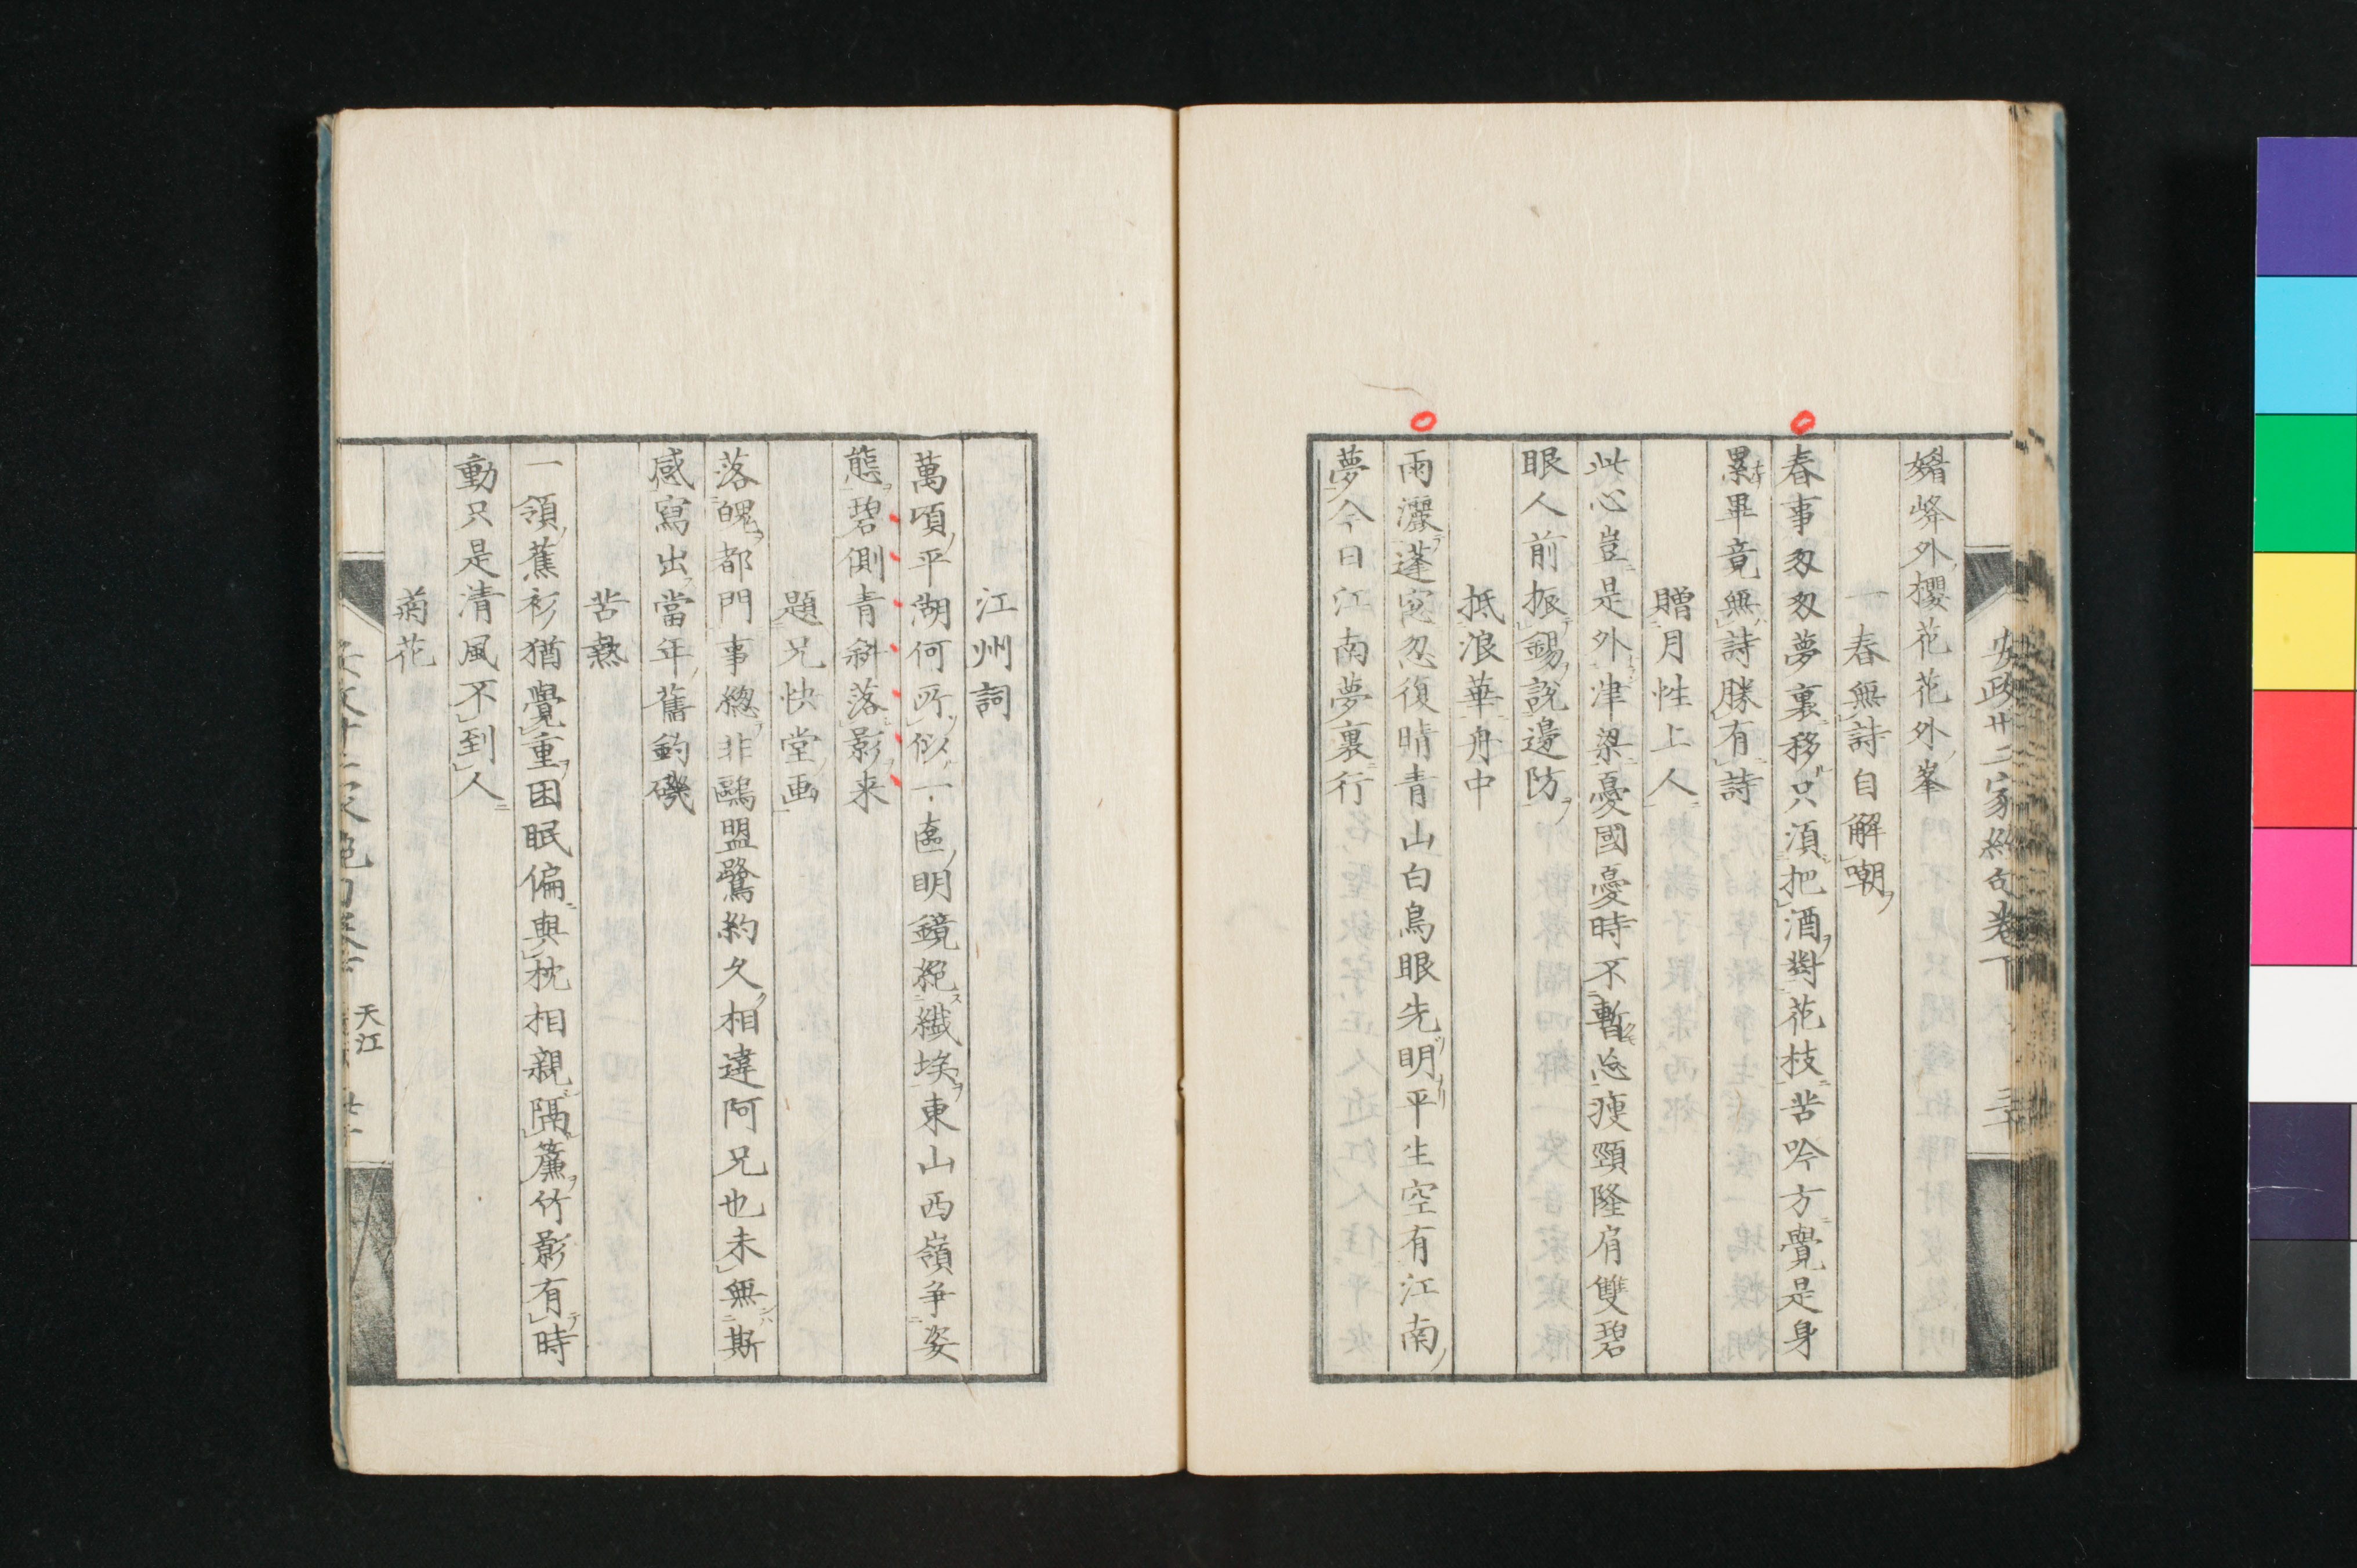 安政廿二家絶句 卷下
嶹峰外櫻花花外峯
一春無詩自解嘲
春事匆匆夢裏移只須把酒對花枝苦吟方覺是身
累畢竟無詩勝有詩
贈月性上人
此心豈是外津梁憂國憂時不暫忘瘦頸隆肩雙碧
眼人前振錫說邊防
抵浪華舟中
雨灑蓬窓忽復晴青山白鳥眼先明平生空有江南
夢今日江南夢裏行
江州詞
萬頃平湖何所似一奩明鏡絕纖埃東山西嶺爭姿
態碧側青斜落影来
題兄快堂画
落魄都門事總非鷗盟鷺約久相違阿兄也未無斯
感寫出當年舊釣磯
苦熱
一領蕉衫猶覺重困眠偏與枕相親隔簾竹影有時
動只是清風不到人
菊花
天江